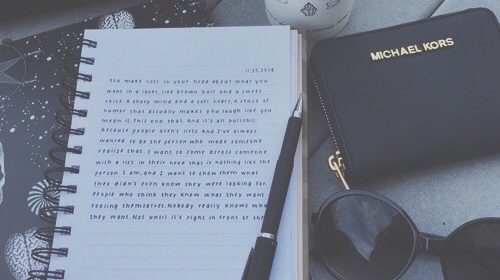 11.23.2014
YOU MAKE LISTS IN YOUR HEAD ABOUT WHAT YOU
WANT IN A LOVER, LIKE BROWN HAIR AND A SWEET
VOICE. A SHARP MIND AND A SOFT HEART, A SENSE OF
HUMOR THAT ACTUALLY MAKES YOU LAUGH LIKE YOU
MEAN IT, THIS AND THAT. AND IT'S ALL BULLSHIT,
BECAUSE PEOPLE AREN'T LISTS. AND I'VE ALWAYS
WANTED TO BE THE PERSON WHO MADE SOMEONE
REALIZE THAT. I WANT TO COME ACROSS SOMEONE
WITH A LIST IN THEIR HEAD THAT IS NOTHING LIKE THE
PERSON I AM, AND I WANT TO SHOW THEM WHAT
THEY DIDN'T EVEN KNOW THEY WERE LOOKING FOR
PEOPLE WHO THINK THEY KNOW WHAT THEY WANT
FOOLING THEMSELVES. NOBODY REALLY KNOWS WHA
THEY WANT. NOT UNTIL IT'S RIGHT IN FRONT OF THE
MICHAEL KORS